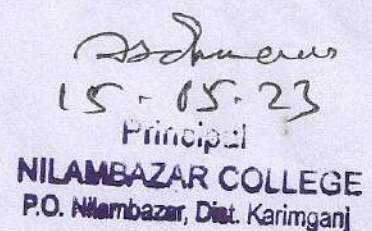 15.05.23
Principal
NILAMBAZAR COLLEGE
P.O. Nilambazar, Dist. Karimganj